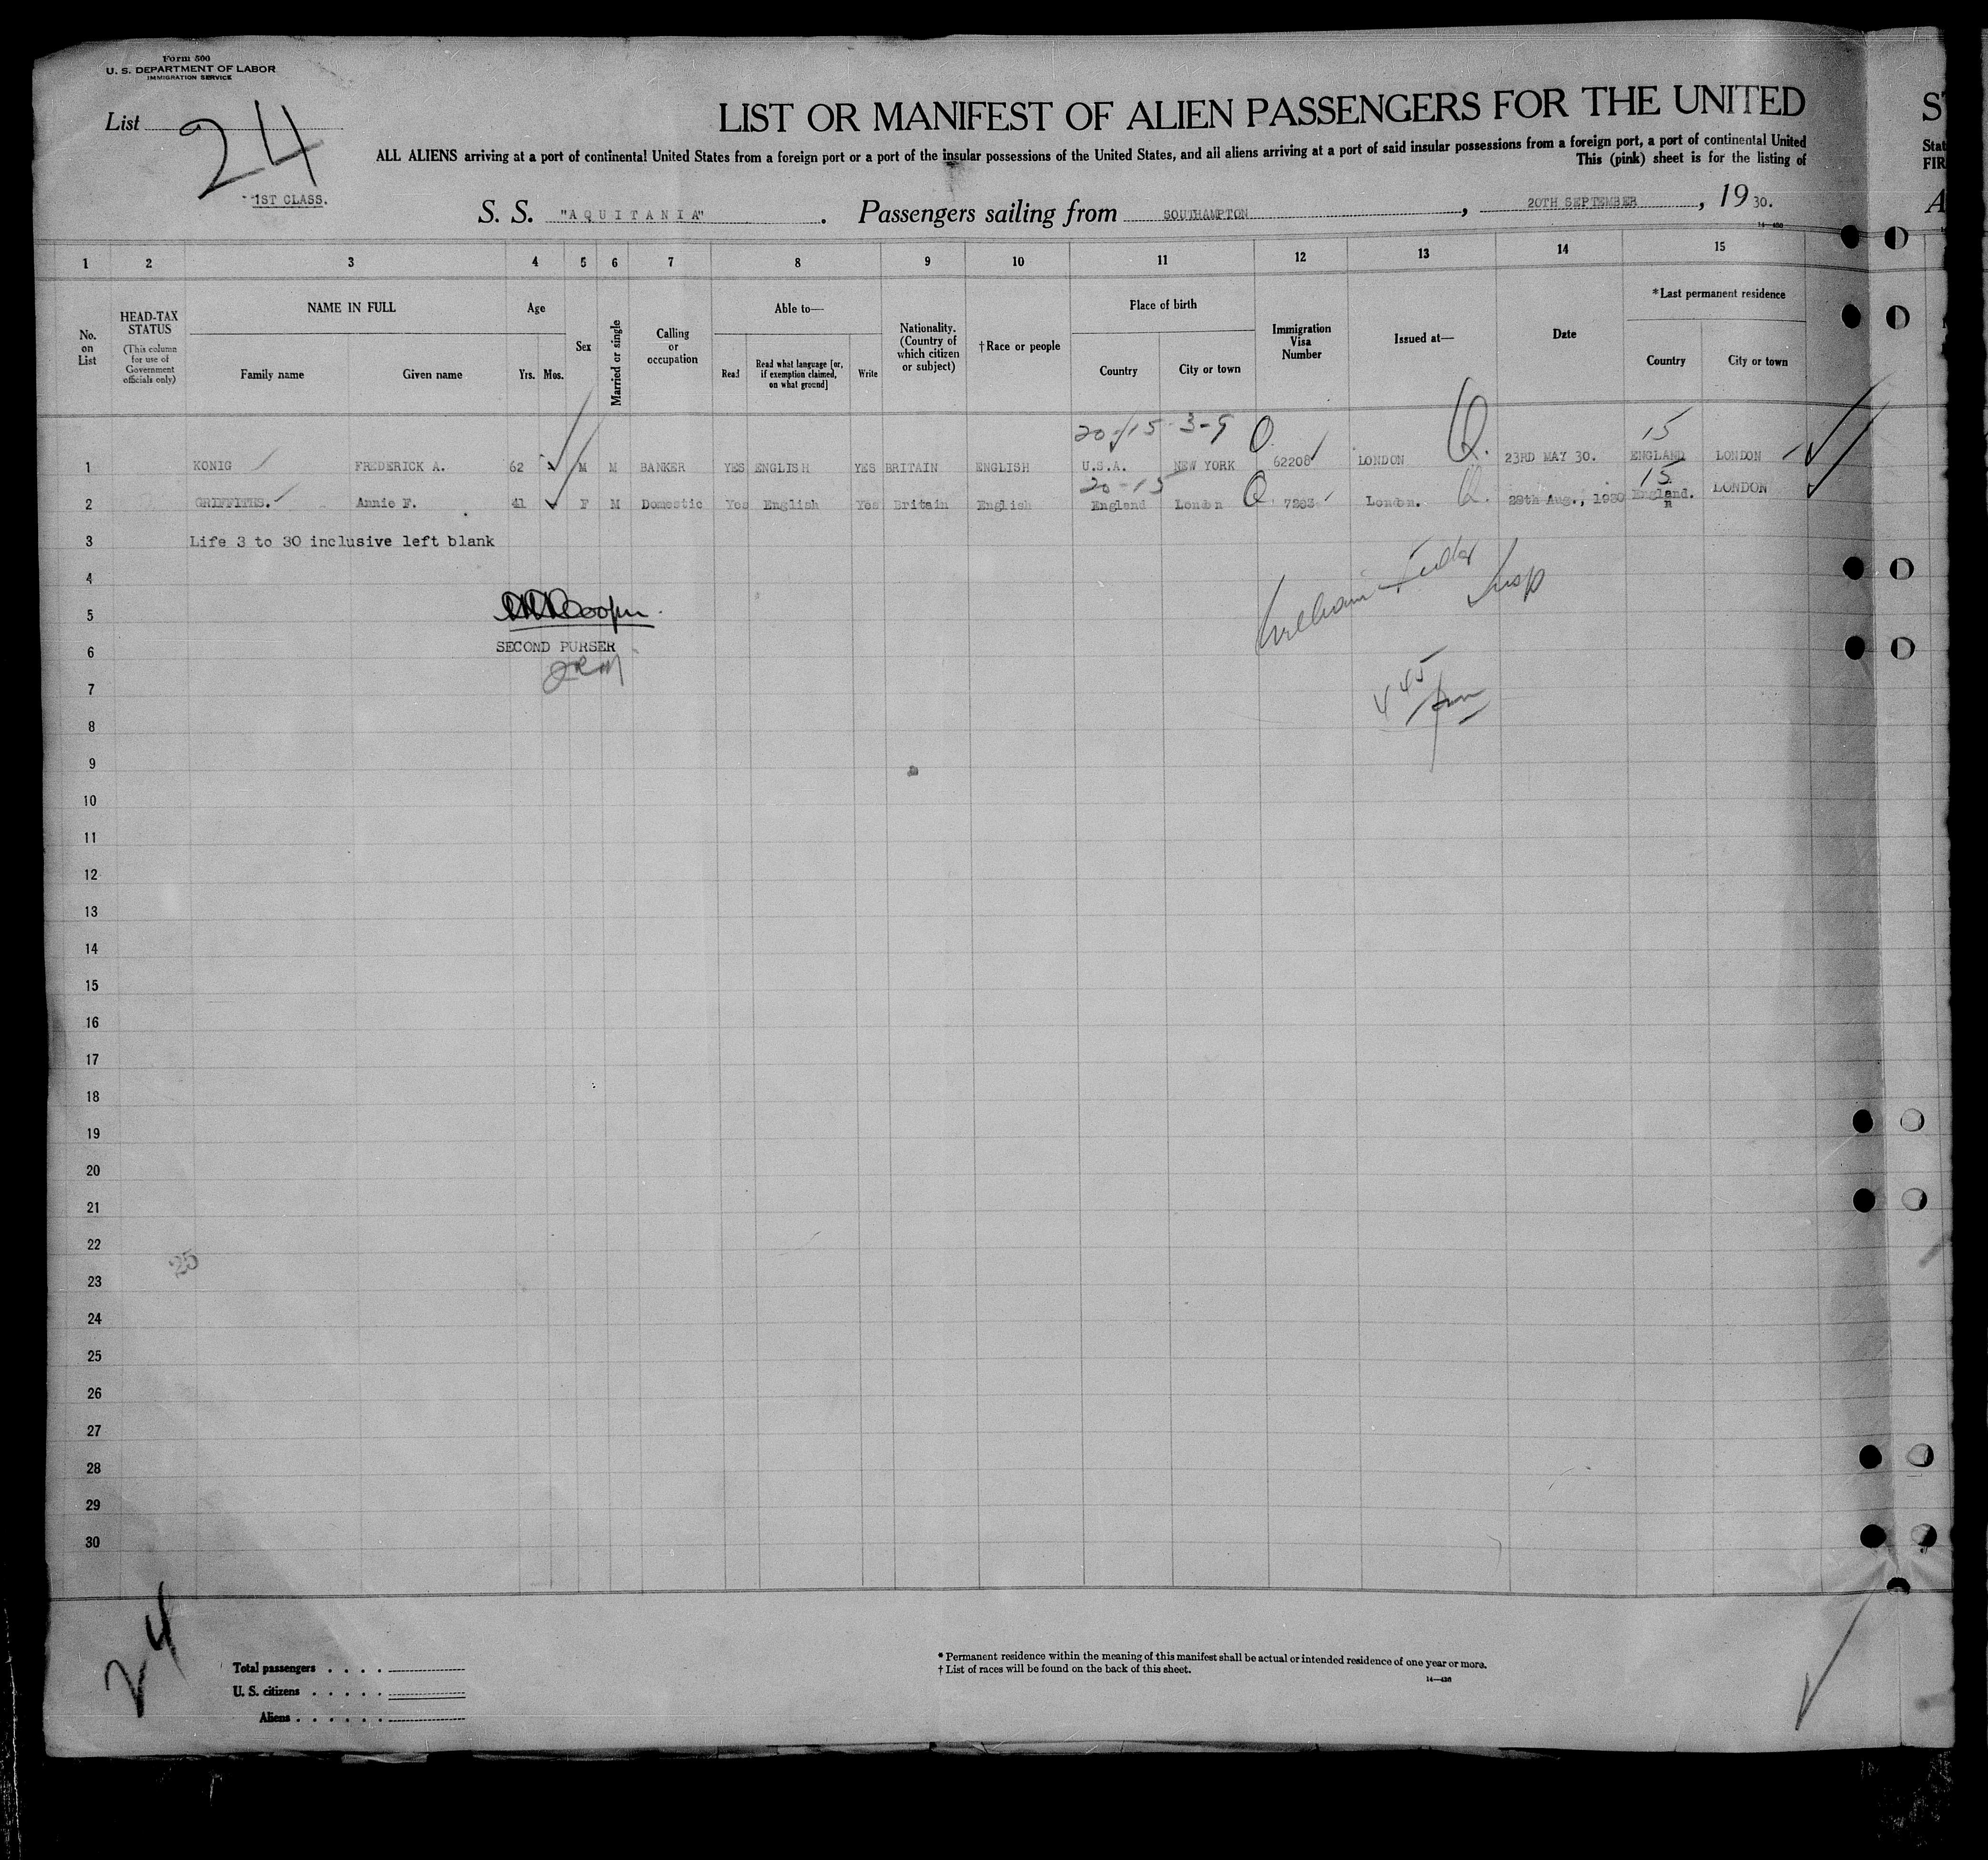 Form 500
U. S. DEPARTMENT OF LABOR
IMMIGRATION SERVICE
List 24
1ST CLASS.
LIST OR MANIFEST OF ALIEN PASSENGERS FOR THE UNITED
ALL ALIENS arriving at a port of continental United States from a foreign port or a port of the insular possessions of the United States, and all aliens arriving at a port of said insular possessions from a foreign port, a port of continental United
This (pink) sheet is for the listing of
S. S. "AQUITANIA". Passengers sailing from SOUTHAMPTON, 20TH SEPTEMBER, 1930.
ST
Stat
FIR
A
14—430
1 2 3 4 5 6 7 8 9 10 11 12 13 14 15
No. on List
HEAD-TAX STATUS
(This column for use of Government officials only)
NAME IN FULL
Family name Given name
Age
Yrs. Mos.
Sex
Married or single
Calling or occupation
Able to—
Read Read what language [or, if exemption claimed, on what ground] Write
Nationality. (Country of which citizen or subject)
†Race or people
Place of birth
Country City or town
Immigration Visa Number
Issued at—
Date
*Last permanent residence
Country City or town
20-15 3-9 15
1 KONIG FREDERICK A. 62 M M BANKER YES ENGLISH YES BRITAIN ENGLISH U.S.A. NEW YORK 62208 LONDON Q. 23RD MAY 30. ENGLAND LONDON
20-15 15
2 GRIFFITHS. Annie F. 41 F M Domestic Yes English Yes Britain English England London 7283 London. Q. 29th Aug., 1930 England. LONDON
3 Life 3 to 30 inclusive left blank
4
5 Cooper.
6 SECOND PURSER
7
8
9
10
11
12
13
14
15
16
17
18
19
20
21
22
25
23
24
25
26
27
28
29
30
William Insp
4 45 pm
24
Total passengers . . . .
U. S. citizens . . . . .
Aliens . . . . . .
* Permanent residence within the meaning of this manifest shall be actual or intended residence of one year or more.
† List of races will be found on the back of this sheet.
14—430